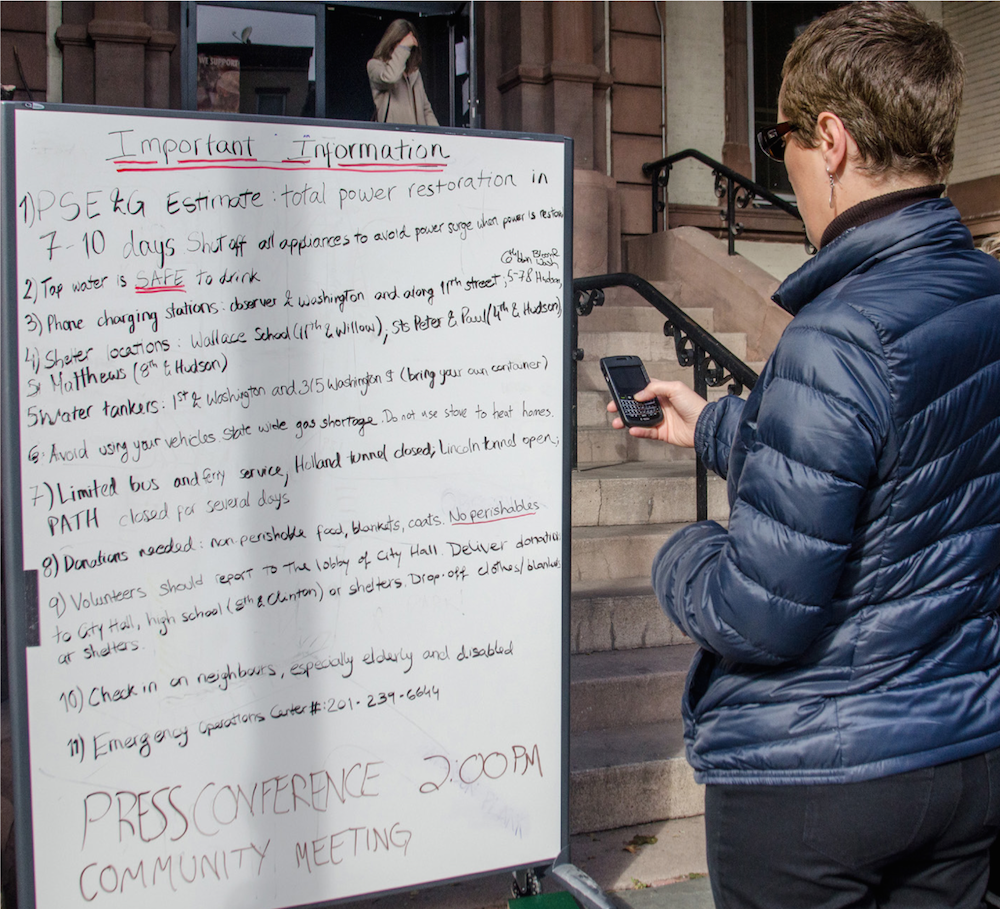 WE SUPPORT
Important Information
1) PSE&G Estimate: total power restoration in
7-10 days Shut off all appliances to avoid power surge when power is
2) Tap water is SAFE to drink
3) Phone charging stations: observer & Washington and along 11th street, 5-78 Hudson,
4) Shelter locations: Wallace School (11th & Willow), Sts Peter & Paul (4th & Hudson)
St Matthews (8th & Hudson)
5 Water tankers: 1st & Washington and 315 Washington St (bring your own container)
6. Avoid using your vehicles. State wide gas shortage. Do not use stove to heat homes.
7) Limited bus and ferry service, Holland tunnel closed, Lincoln tunnel open,
PATH closed for several days
8) Donations needed: non perishable food, blankets, coats. No perishables
9) Volunteers should report to the lobby of City Hall. Deliver
to City Hall, high school (8th & Clinton) or shelters. Drop-off clothes/
at shelters.
10) Check in on neighbours, especially elderly and disabled
11) Emergency Operations Center #: 201-239-6644
PRESS CONFERENCE 2:00 PM
COMMUNITY MEETING